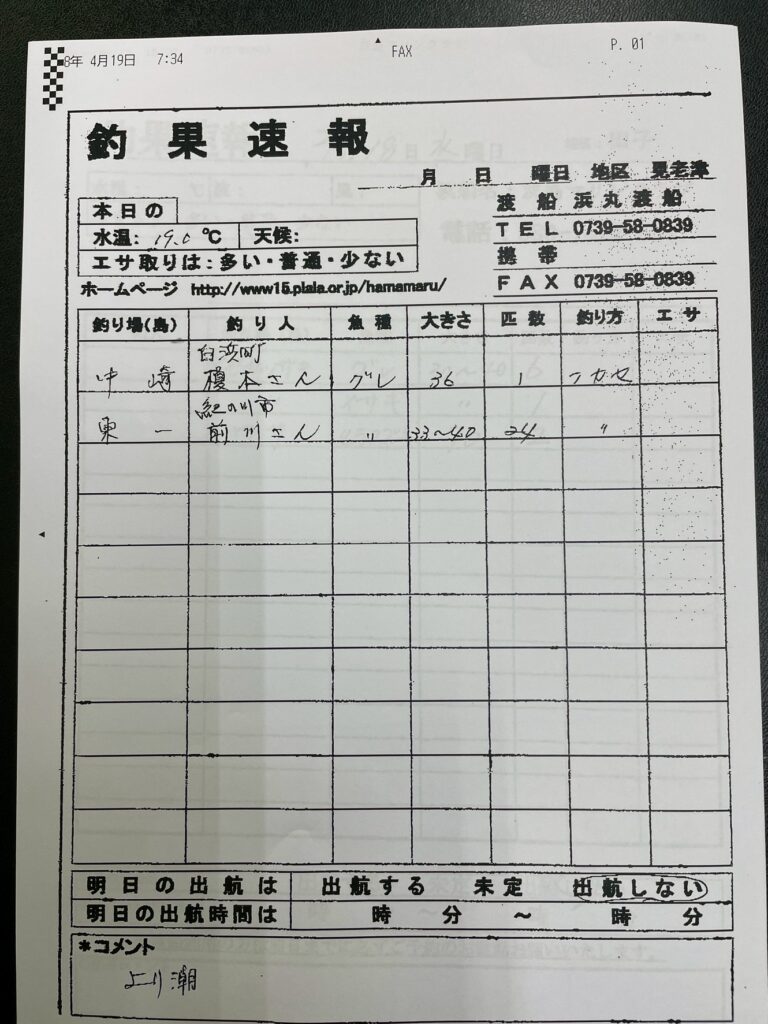 8年 4月19日 7:34 FAX P. 01
釣果速報
月 日 曜日 地区 見老津
渡船 浜丸渡船
本日の
TEL 0739-58-0839
水温: 19.0 ℃ 天候:
携帯
エサ取りは:多い・普通・少ない
FAX 0739-58-0839
ホームページ http://www15.plala.or.jp/hamamaru/
釣り場(島) 釣り人 魚種 大きさ 匹数 釣り方 エサ
白浜町
中崎 榎本さん グレ 36 1 フカセ
紀の川市
東一 前川さん 〃 33~40 24 〃
明日の出航は 出航する 未定 出航しない
明日の出航時間は 時 分 ~ 時 分
*コメント
より潮